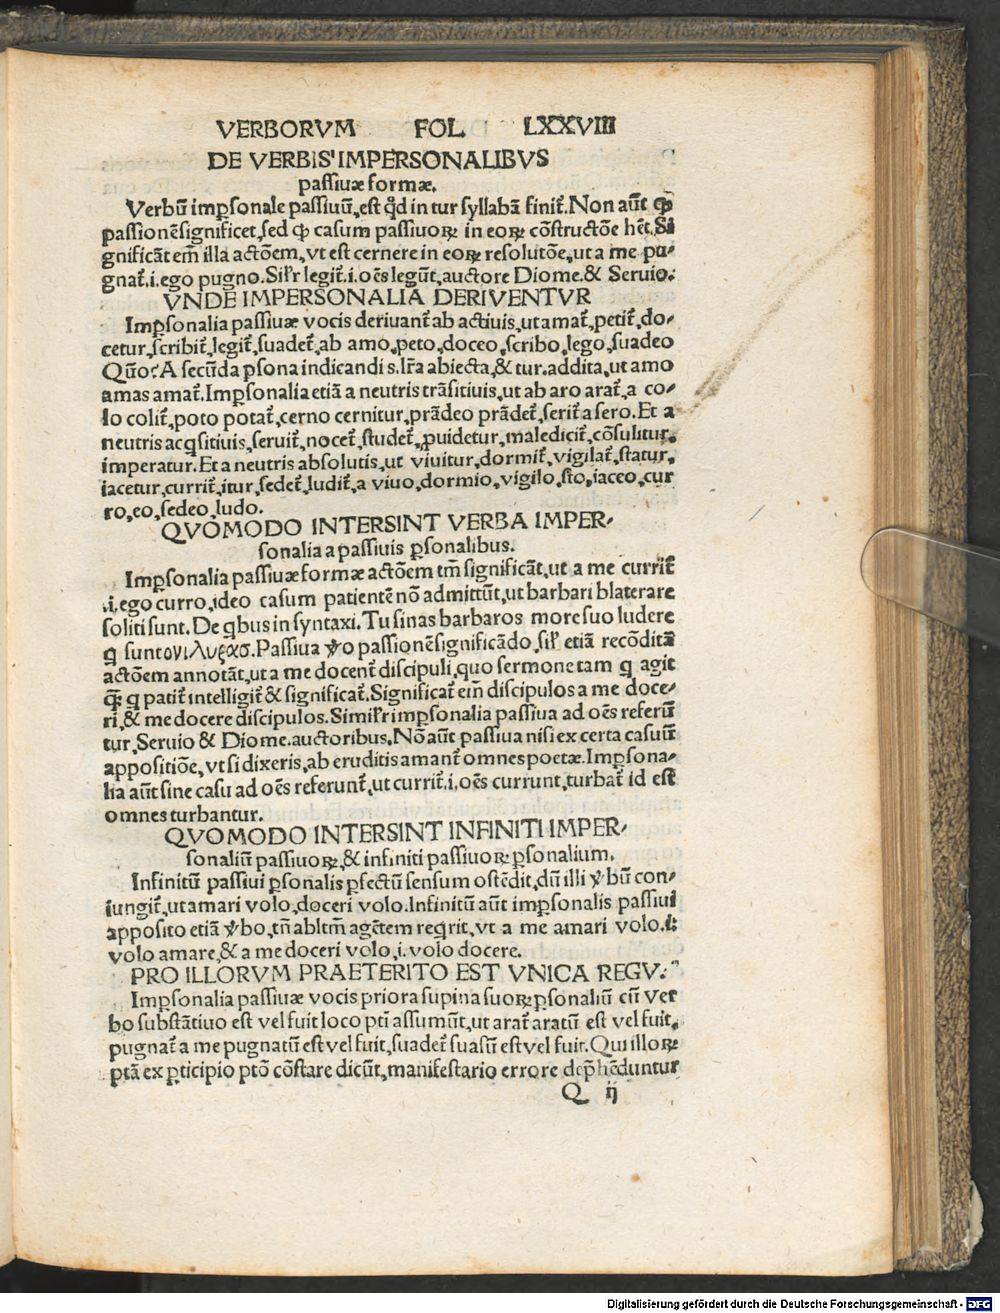 VERBORVM FOL. LXXVIII
DE VERBIS IMPERSONALIBVS
passiuæ formæ.
Verbũ imꝑsonale passiuũ, est qď in tur syllabã finit̃. Non aũt ꝙ
passionẽ significet, sed ꝙ casum passiuoꝝ in eoꝝ cõstructõe hẽt. Si
gnificãt em̃ illa actõem, vt est cernere in eoꝝ resolutõe, ut a me pu-
gnat̃. i. ego pugno. Sil̃r legit̃. i. oẽs legũt, auctore Diome. & Seruio.
VNDE IMPERSONALIA DERIVENTVR
Imꝑsonalia passiuæ vocis deriuant̃ ab actiuis, ut amat̃, petit̃, do-
cetur, scribit̃, legit̃, suadet̃, ab amo, peto, doceo, scribo, lego, suadeo
Quõ? A secũda ꝑsona indicandi s. lr̃a abiecta, & tur. addita, ut amo
amas amat̃. Imꝑsonalia etiã a neutris trãsitiuis, ut ab aro arat̃, a co-
lo colit̃, poto potat̃, cerno cernitur, prãdeo prãdet̃, serit̃ a sero. Et a
neutris acq̃sitiuis, seruit̃, nocet̃, studet̃, ꝓuidetur, maledicit̃, cõsulitur,
imperatur. Et a neutris absolutis, ut viuitur, dormit̃, vigilat̃, statur,
iacetur, currit̃, itur, sedet̃, ludit̃, a viuo, dormio, vigilo, sto, iaceo, cur
ro, eo, sedeo, ludo.
QVOMODO INTERSINT VERBA IMPER-
sonalia a passiuis ꝑsonalibus.
Imꝑsonalia passiuæ formæ actõem tm̃ significãt, ut a me currit̃
.i. ego curro, ideo casum patientẽ nõ admittũt, ut barbari blaterare
soliti sunt. De qbus in syntaxi. Tu sinas barbaros more suo ludere
q sunt ονι λυρασ. Passiua ṽo passionẽ significãdo, sil̃ etiã recõditã
actõem annotãt, ut a me docent̃ discipuli, quo sermone tam q agit
q̃ꝫ q patit̃ intelligit̃ & significat̃. Significat̃ em̃ discipulos a me doce-
ri, & me docere discipulos. Simil̃r imꝑsonalia passiua ad oẽs referũ
tur, Seruio & Diome. auctoribus. Nõ aũt passiua nisi ex certa casuũ
appositiõe, vt si dixeris, ab eruditis amant̃ omnes poetæ. Imꝑsona-
lia aũt sine casu ad oẽs referunt̃, ut currit̃. i. oẽs currunt, turbat̃ id est
omnes turbantur.
QVOMODO INTERSINT INFINITI IMPER-
sonaliũ passiuoꝝ, & infiniti passiuoꝝ ꝑsonalium.
Infinitũ passiui ꝑsonalis ꝑfectũ sensum ostẽdit, dũ illi ṽbũ con-
iungit̃, ut amari volo, doceri volo. Infinitũ aũt imꝑsonalis passiui
apposito etiã ṽbo, tñ abltm̃ agẽtem reqrit, vt a me amari volo. i.
volo amare, & a me doceri volo, i. volo docere.
PRO ILLORVM PRAETERITO EST VNICA REGV.
Imꝑsonalia passiuæ vocis priora supina suoꝝ ꝑsonaliũ cũ ver
bo substãtiuo est vel fuit loco ptĩ assumũt, ut arat̃ aratũ est vel fuit,
pugnat̃ a me pugnatũ est vel fuit, suadet̃ suasũ est vel fuit. Qui illoꝝ
ptã ex ꝑticipio ptõ cõstare dicũt, manifestario errore dep̃hẽduntur
Q ij
Digitalisierung gefördert durch die Deutsche Forschungsgemeinschaft - DFG